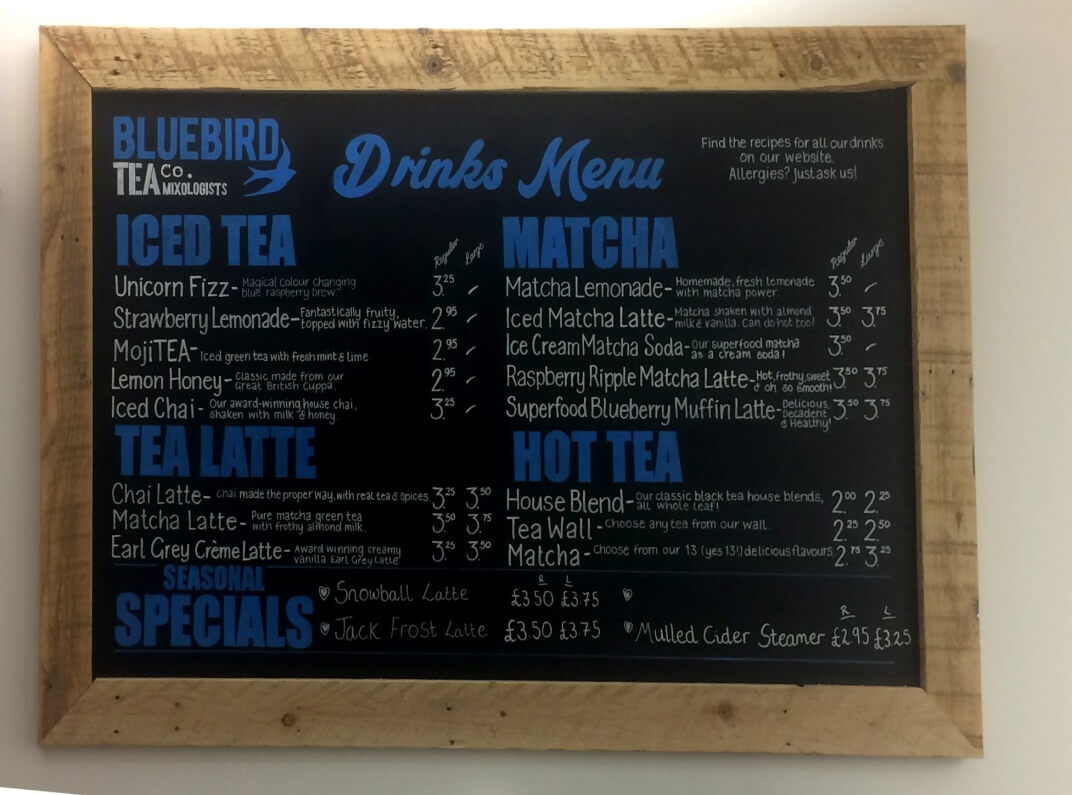 BLUEBIRD
TEA Co.
MIXOLOGISTS
Drinks Menu
Find the recipes for all our drinks
on our website.
Allergies? Just ask us!
ICED TEA
Regular Large
Unicorn Fizz - Magical colour changing
blue raspberry brew. 3.25 -
Strawberry Lemonade - Fantastically fruity,
topped with fizzy water. 2.95 -
MojiTEA - Iced green tea with fresh mint & lime 2.95 -
Lemon Honey - Classic made from our
Great British Cuppa. 2.95 -
Iced Chai - Our award-winning house chai,
shaken with milk & honey. 3.25 -
TEA LATTE
Chai Latte - Chai made the proper way, with real tea & spices 3.25 3.50
Matcha Latte - Pure matcha green tea
with frothy almond milk. 3.50 3.75
Earl Grey Crème Latte - Award winning creamy
vanilla Earl Grey Latte 3.25 3.50
MATCHA
Regular Large
Matcha Lemonade - Homemade, fresh lemonade
with matcha power. 3.50 -
Iced Matcha Latte - Matcha shaken with almond
milk & vanilla. Can do hot too! 3.50 3.75
Ice Cream Matcha Soda - Our superfood matcha
as a cream soda! 3.50 -
Raspberry Ripple Matcha Latte - Hot, frothy, sweet
& oh so smooth! 3.50 3.75
Superfood Blueberry Muffin Latte - Delicious,
Decadent
& Healthy! 3.50 3.75
HOT TEA
House Blend - Our classic black tea house blends,
all whole leaf! 2.00 2.25
Tea Wall - Choose any tea from our wall. 2.25 2.50
Matcha - Choose from our 13 (yes 13!) delicious flavours. 2.75 3.25
SEASONAL
SPECIALS
R L
Snowball Latte £3.50 £3.75
Jack Frost Latte £3.50 £3.75
R L
Mulled Cider Steamer £2.95 £3.25